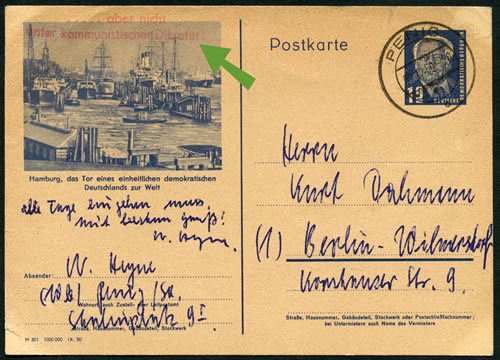 aber nicht
unter kommunistischer Diktatur!
Postkarte
PENIG
12
DEUTSCHE
Hamburg, das Tor eines einheitlichen demokratischen
Deutschlands zur Welt
alle Tage eingehen muss,
mit bestem Gruß!
W. Heyne
Absender: W. Heyne
Penig/Sa.
Wohnort, auch Zustell- oder Leitpostamt
Stalinplatz 9 I
Straße, Hausnummer, Gebäudeteil, Stockwerk
H 301 1000.000 (X. 50)
Herrn
Kurt Dahmann
(1) Berlin-Wilmersdorf
Str. 9.
Straße, Hausnummer, Gebäudeteil, Stockwerk oder Postschließfachnummer;
bei Untermietern auch Name des Vermieters